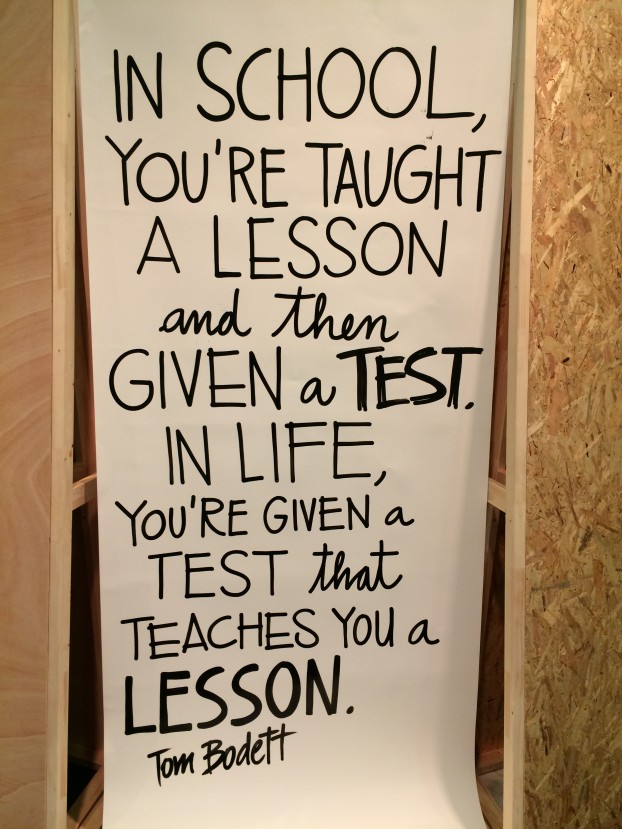 IN SCHOOL,
YOU'RE TAUGHT
A LESSON
and then
GIVEN a TEST.
IN LIFE,
YOU'RE GIVEN a
TEST that
TEACHES YOU a
LESSON.
Tom Bodett